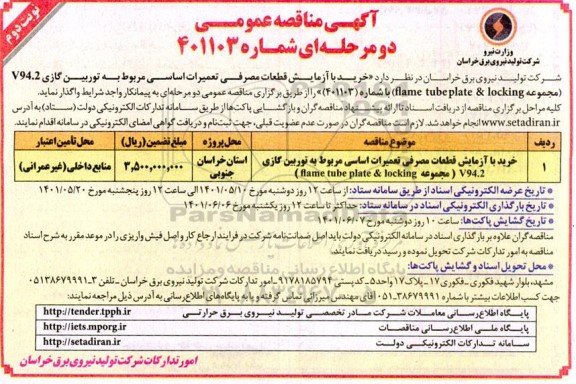 نوبت دوم
آگهی مناقصه عمومی
دو مرحله‌ای شماره ۴۰۱۱۰۳
وزارت نیرو
شرکت تولید نیروی برق خراسان
شرکت تولید نیروی برق خراسان در نظر دارد «خرید با آزمایش قطعات مصرفی تعمیرات اساسی مربوط به توربین گازی V94.2
(مجموعه flame tube plate & locking) با شماره (۴۰۱۱۰۳)» را از طریق برگزاری مناقصه عمومی دو مرحله‌ای به پیمانکار واجد شرایط واگذار نماید.
کلیه مراحل برگزاری مناقصه از دریافت اسناد تا ارائه پیشنهاد مناقصه گران و بازگشایی پاکت‌ها از طریق سامانه تدارکات الکترونیکی دولت (ستاد) به آدرس
www.setadiran.ir انجام خواهد شد. لازم است مناقصه گران در صورت عدم عضویت قبلی، جهت ثبت نام و دریافت گواهی امضای الکترونیکی در سامانه اقدام نمایند.
ردیف موضوع مناقصه محل پروژه مبلغ تضمین (ریال) محل تأمین اعتبار
۱ خرید با آزمایش قطعات مصرفی تعمیرات اساسی مربوط به توربین گازی استان خراسان ۳,۵۰۰,۰۰۰,۰۰۰ منابع داخلی (غیرعمرانی)
V94.2 ( مجموعه flame tube plate & locking ) جنوبی
* تاریخ عرضه الکترونیکی اسناد از طریق سامانه ستاد: از ساعت ۱۲ روز دوشنبه مورخ ۱۴۰۱/۰۵/۱۰ الی ساعت ۱۲ روز پنجشنبه مورخ ۱۴۰۱/۰۵/۲۰
* تاریخ بارگذاری الکترونیکی اسناد در سامانه ستاد: حداکثر تا ساعت ۱۲ روز یکشنبه مورخ ۱۴۰۱/۰۶/۰۶
* تاریخ گشایش پاکت‌ها: ساعت ۱۰ روز دوشنبه مورخ ۱۴۰۱/۰۶/۰۷
مناقصه گران علاوه بر بارگذاری اسناد در سامانه الکترونیکی دولت باید اصل ضمانت نامه شرکت در فرایند ارجاع کار و اصل فیش واریزی را در موعد مقرر به شرح اسناد
مناقصه به امور تدارکات شرکت تحویل نموده و رسید دریافت نمایند.
* محل تحویل اسناد و گشایش پاکت‌ها:
مشهد، بلوار شهید فکوری - فکوری ۱۷ - پلاک ۱۷ واحد ۵ - کدپستی ۹۱۷۸۱۸۵۷۹۴ - امور تدارکات شرکت تولید نیروی برق خراسان - تلفن ۳-۰۵۱۳۸۶۷۹۹۹۱
جهت کسب اطلاعات بیشتر با شماره ۳۸۶۷۹۹۹۱-۰۵۱ آقای مهندس میرزائی تماس گرفته و یا به پایگاه‌های اطلاع رسانی به آدرس ذیل مراجعه نمایند:
پایگاه اطلاع رسانی معاملات شرکت مادر تخصصی تولید نیروی برق حرارتی http://tender.tpph.ir
پایگاه ملی اطلاع رسانی مناقصات http://iets.mporg.ir
سامانه تدارکات الکترونیکی دولت http://setadiran.ir
امور تدارکات شرکت تولید نیروی برق خراسان